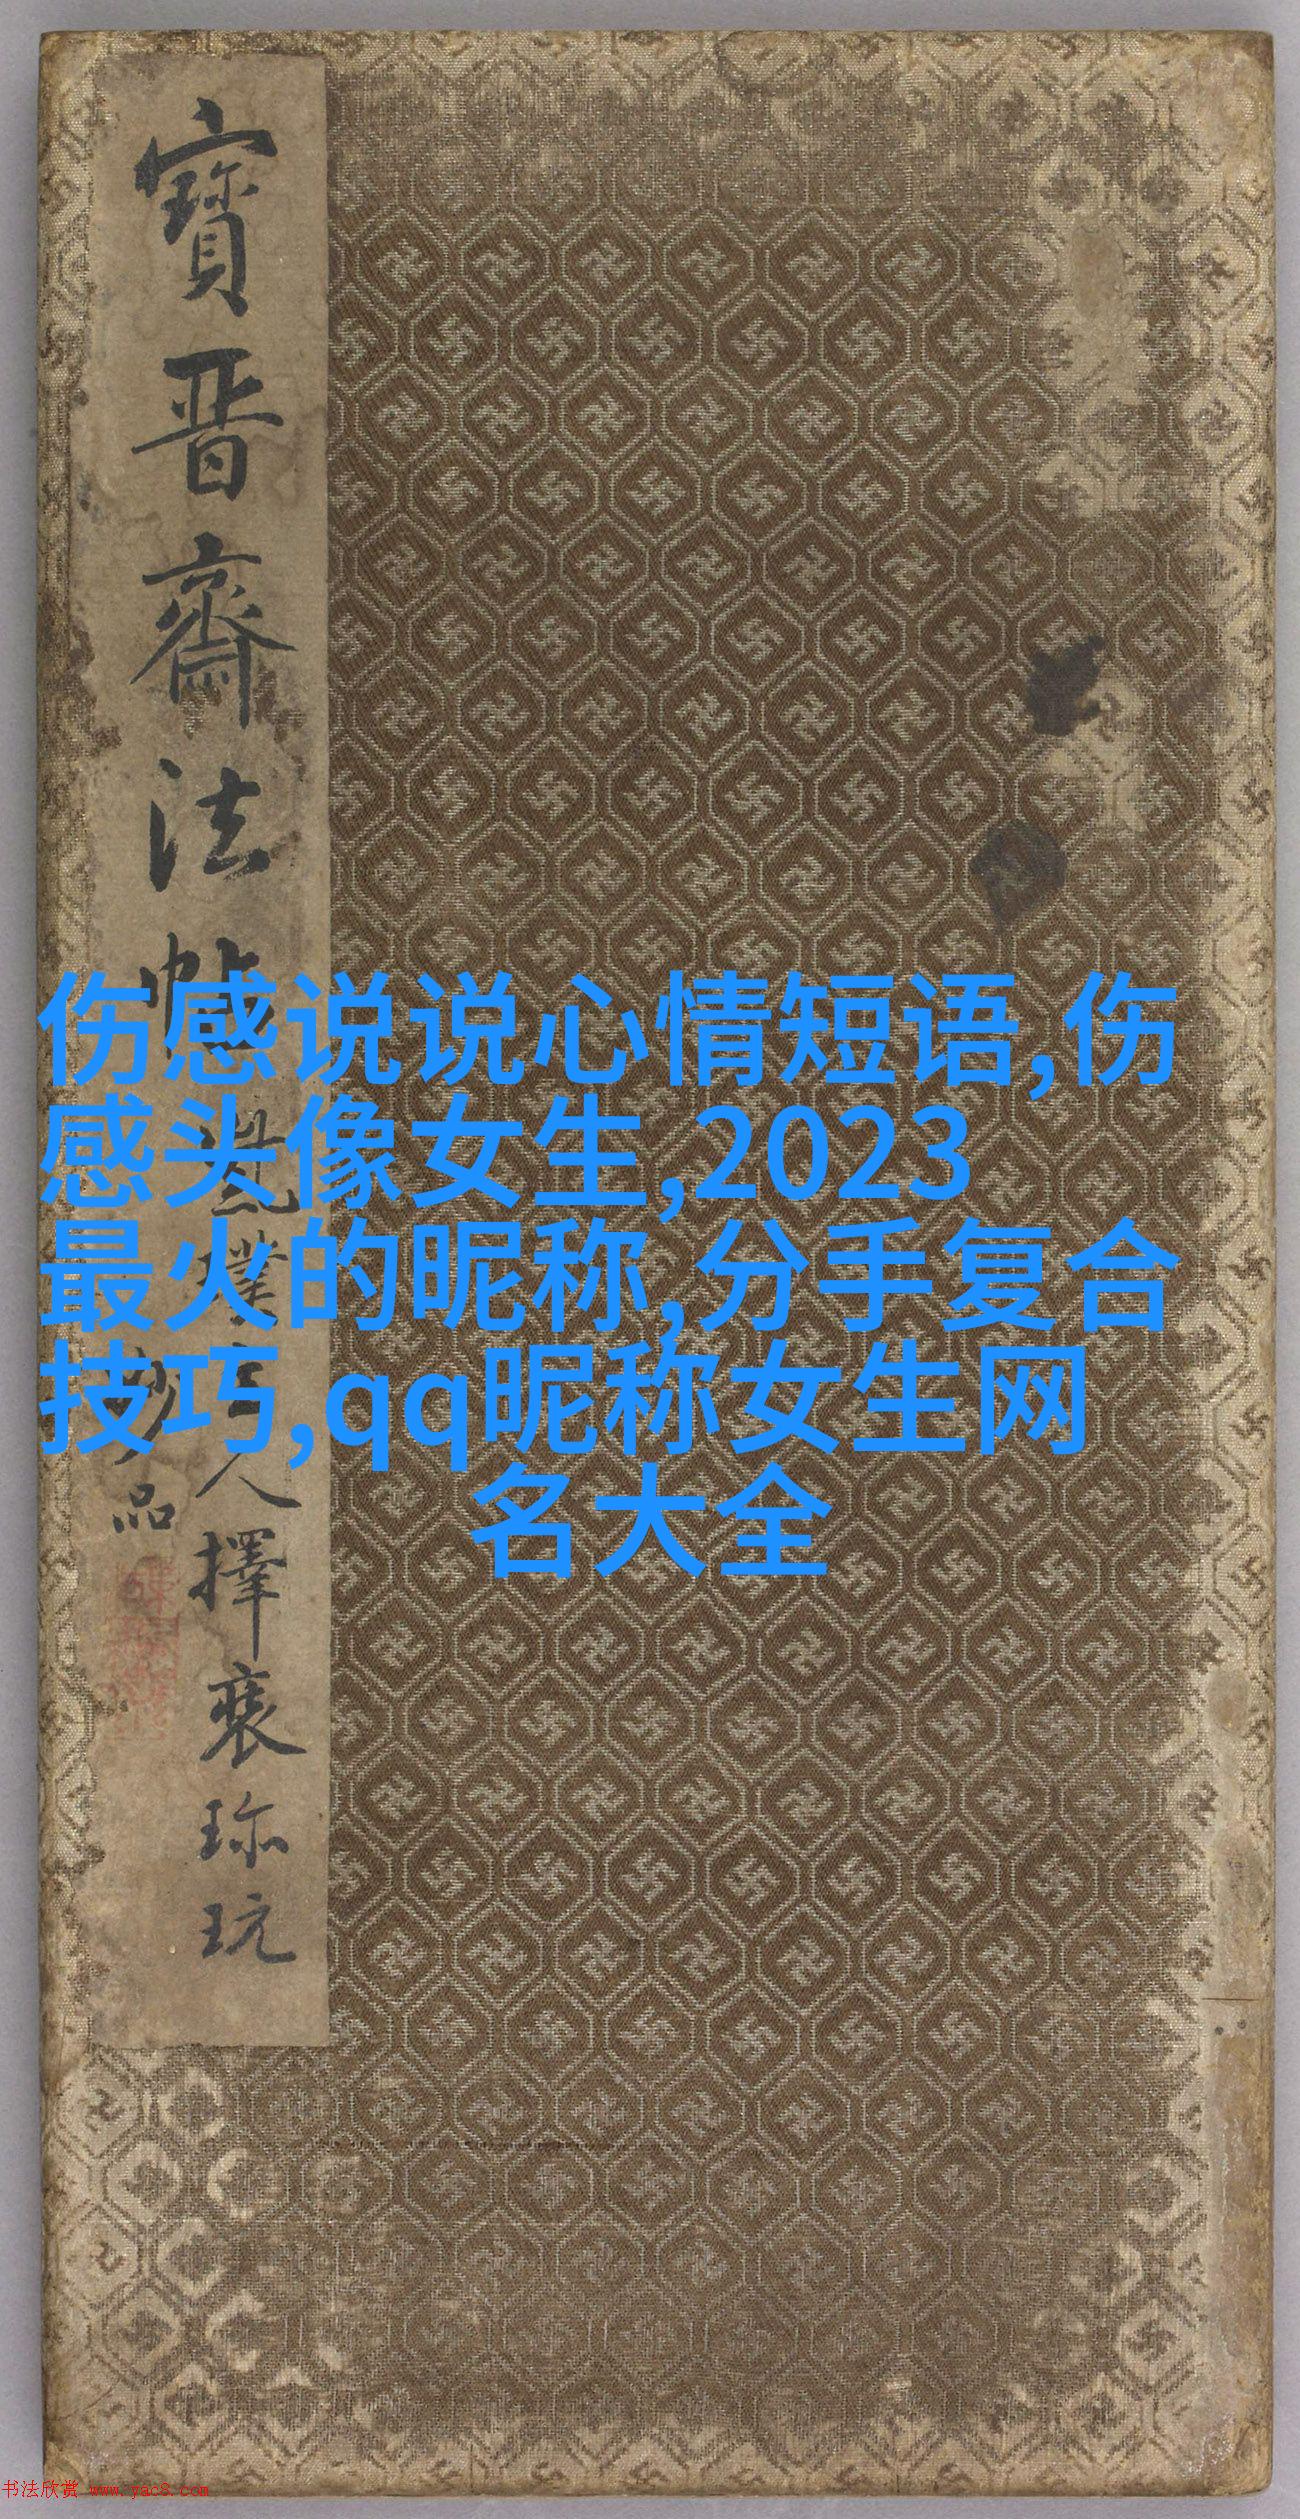 寶晉齋法帖
擇裘珎玩
品
伤感说说心情短语,伤
感头像女生,2023
最火的昵称,分手复合
技巧,qq昵称女生网
名大全
书法欣赏 www.yac8.com